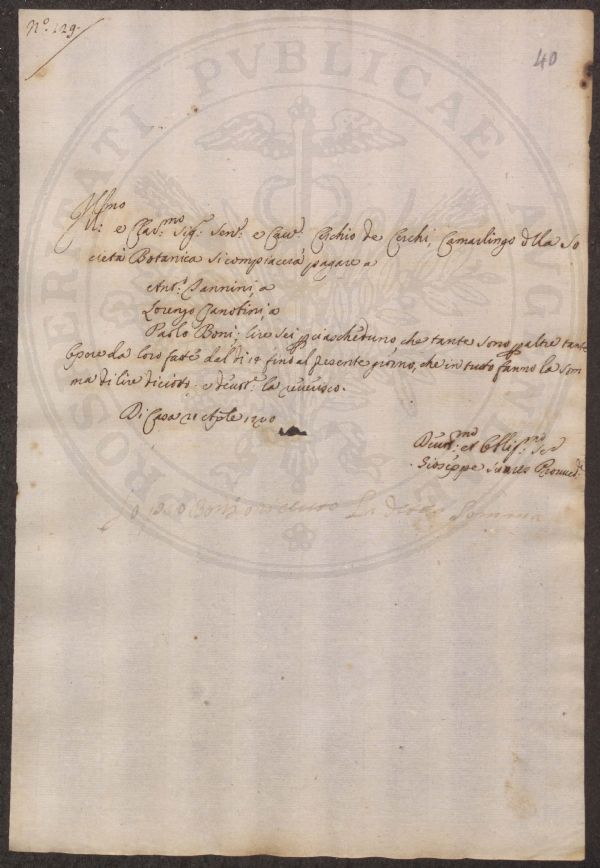 N.° 129.
40
PROSPERITATI PUBLICAE AUGENDAE
Ill:mo
e Clar:mo Sig: Sen: e Cav: Cerchio de Cerchi, Camarlingo della So
cietà Botanica si compiacerà pagare a
Ant: Vannini, a
Lorenzo Zanobini, a
Paolo Boni: lire sei p ciascheduno che tante sono p altre tante
Opere da loro fatte dal dì 14 fino al presente giorno, che in tutto fanno la som
ma di lire diciotto e devot: la riverisco.
Di Casa 21 Aple
Devot:mo et Obblig:mo Ser
Gioseppe Proved:
Io Boni o riceuto La detta Somma